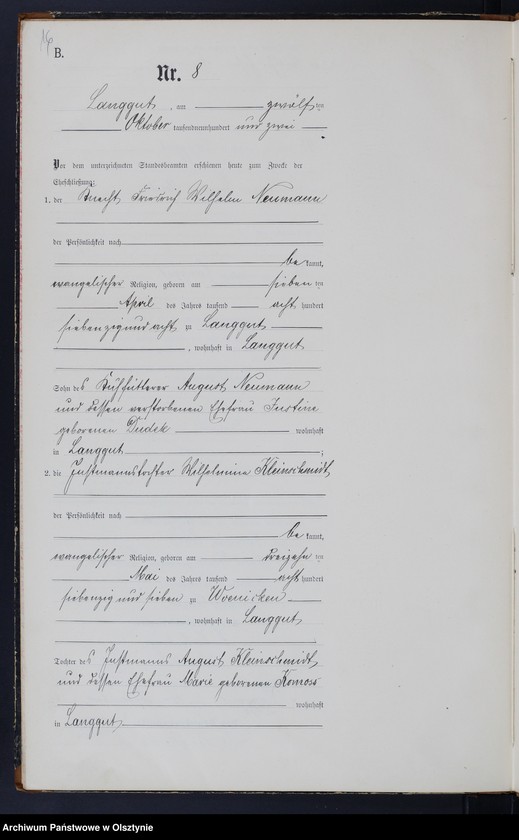 B.
Nr. 8
Langgut, am zwölften
Oktober tausendneunhundert und zwei
Vor dem unterzeichneten Standesbeamten erschienen heute zum Zwecke der
Eheschließung:
1. der Knecht Friedrich Wilhelm Neumann
der Persönlichkeit nach
be kannt,
evangelischer Religion, geboren am sieben ten
April des Jahres tausend acht hundert
siebenzig und acht zu Langgut
, wohnhaft in Langgut
Sohn des Kuhfütterer August Neumann
und dessen verstorbenen Ehefrau Justine
geborenen Dudek wohnhaft
in Langgut ;
2. die Instmannstochter Wilhelmine Kleinschmidt
der Persönlichkeit nach
be kannt,
evangelischer Religion, geboren am dreizehn ten
Mai des Jahres tausend acht hundert
siebenzig und sieben zu Woenicken
, wohnhaft in Langgut
Tochter des Instmanns August Kleinschmidt
und dessen Ehefrau Marie geborenen Komoss
wohnhaft
in Langgut
Archiwum Państwowe w Olsztynie